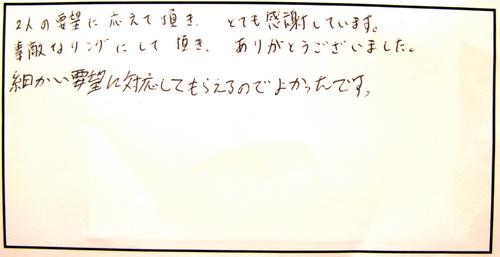 2人の要望に応えて頂き、とても感謝しています。
素敵なリングにして頂き、ありがとうございました。
細かい要望に対応してもらえるのでよかったです。